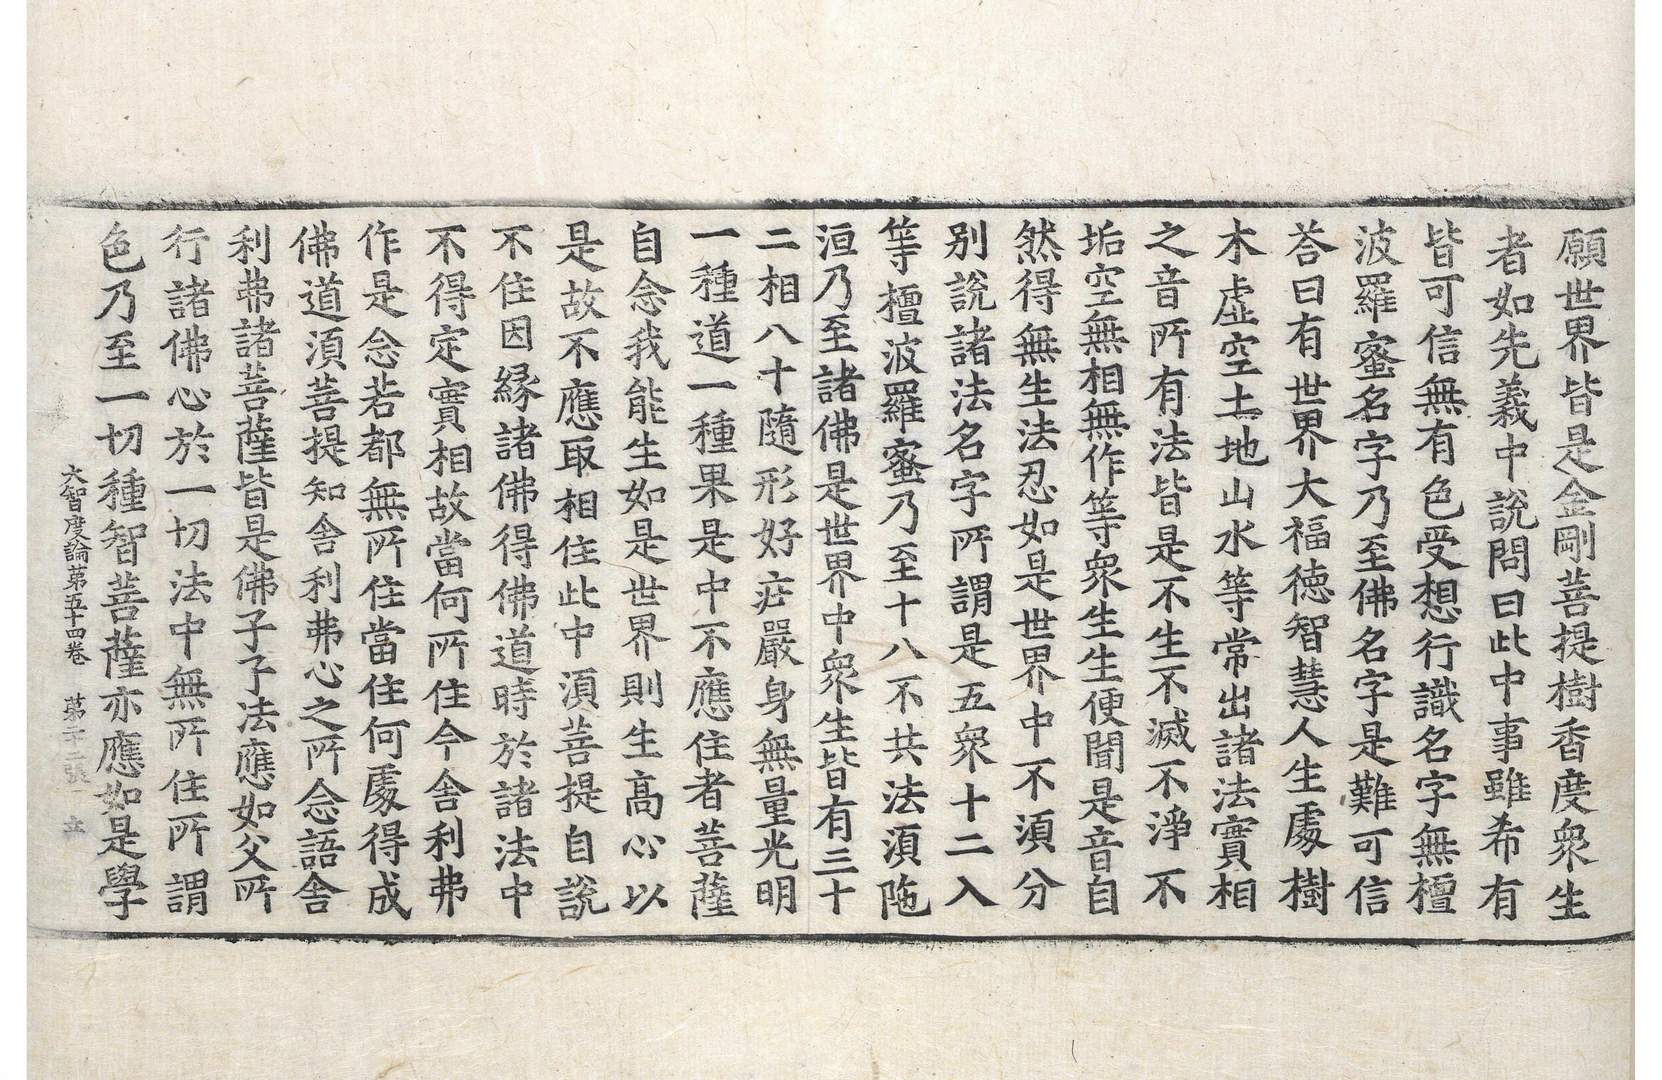 願世界皆是金剛菩提樹香度衆生
者如先義中說問曰此中事雖希有
皆可信無有色受想行識名字無檀
波羅蜜名字乃至佛名字是難可信
荅曰有世界大福徳智慧人生處樹
木虛空土地山水等常出諸法實相
之音所有法皆是不生不滅不淨不
垢空無相無作等衆生生便聞是音自
然得無生法忍如是世界中不須分
別說諸法名字所謂是五衆十二入
等檀波羅蜜乃至十八不共法須陁
洹乃至諸佛是世界中衆生皆有三十
二相八十隨形好庄嚴身無量光明
一種道一種果是中不應住者菩薩
自念我能生如是世界則生高心以
是故不應取相住此中須菩提自說
不住因縁諸佛得佛道時於諸法中
不得定實相故當何所住今舍利弗
作是念若都無所住當住何處得成
佛道須菩提知舍利弗心之所念語舍
利弗諸菩薩皆是佛子子法應如父所
行諸佛心於一切法中無所住所謂
色乃至一切種智菩薩亦應如是學
大智度論第五十四卷 第二十二張 立